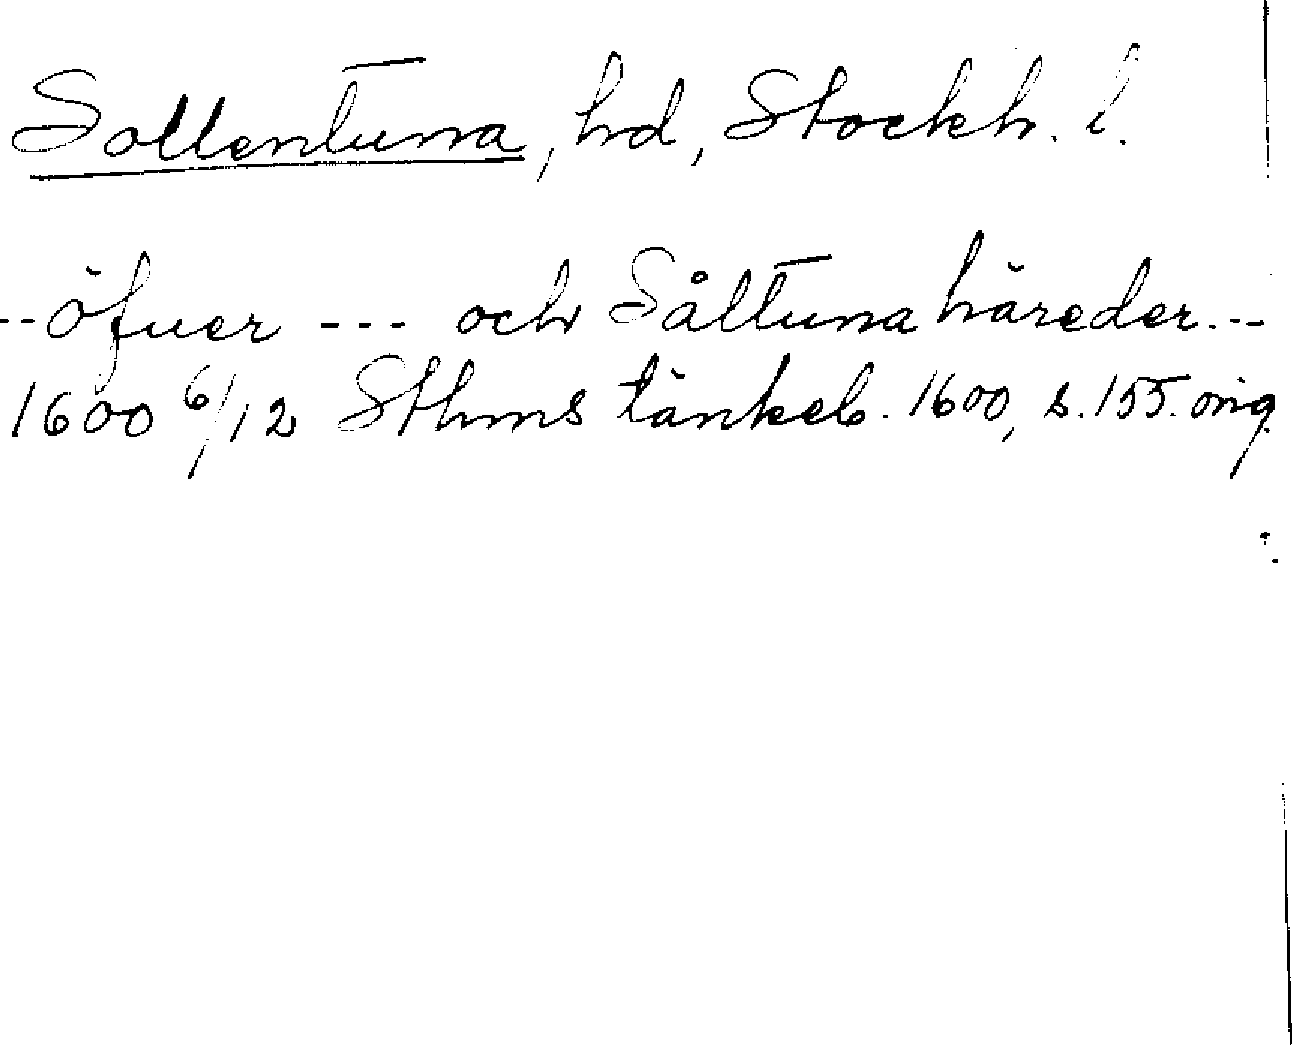 Sollentuna, hd, Stockh. l.
-- öfuer --- och Såltuna häreder ---
1600 6/12 Sthms tänkeb. 1600, s. 155. orig.